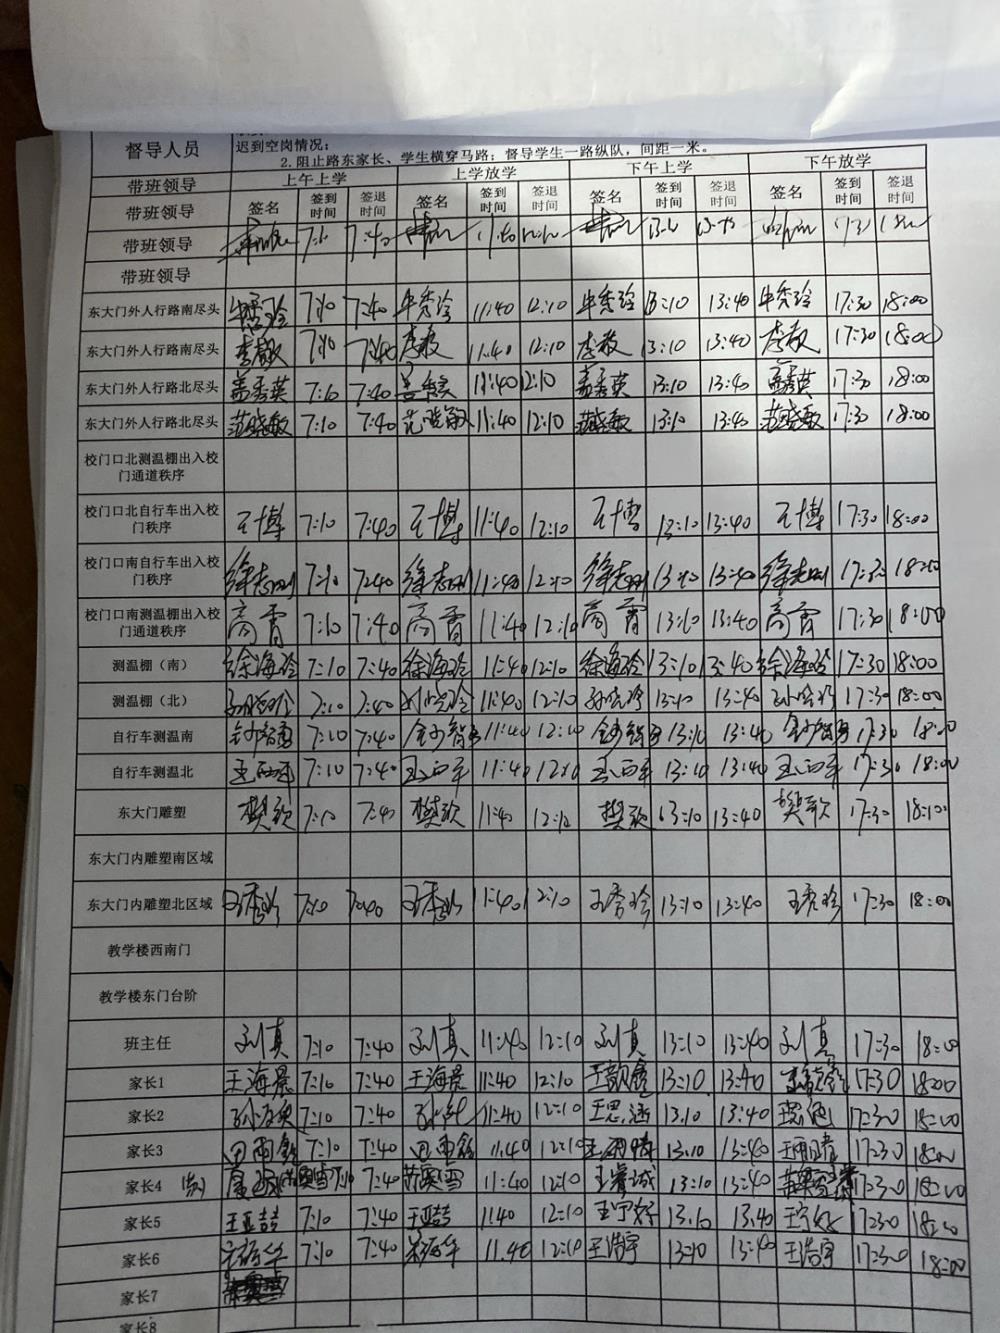 督导人员 迟到空岗情况：
2. 阻止路东家长、学生横穿马路；督导学生一路纵队，间距一米。
带班领导 上午上学 上学放学 下午上学 下午放学
带班领导 签名 签到时间 签退时间 签名 签到时间 签退时间 签名 签到时间 签退时间 签名 签到时间 签退时间
带班领导 7:40
带班领导
东大门外人行路南尽头 7:10 7:40 牛秀玲 11:40 12:10 牛秀玲 13:10 13:40 牛秀玲 17:30 18:00
东大门外人行路南尽头 李敏 7:10 7:40 李敏 11:40 12:10 李敏 13:10 13:40 李敏 17:30 18:00
东大门外人行路北尽头 盖秀英 7:10 7:40 11:40 12:10 盖秀英 13:10 13:40 盖秀英 17:30 18:00
东大门外人行路北尽头 范晓敏 7:10 7:40 范晓敏 11:40 12:10 范晓敏 13:10 13:40 范晓敏 17:30 18:00
校门口北测温棚出入校门通道秩序
校门口北自行车出入校门秩序 王博 7:10 7:40 王博 11:40 12:10 王博 13:10 13:40 王博 17:30 18:00
校门口南自行车出入校门秩序 徐志刚 7:10 7:40 徐志刚 11:40 12:10 徐志刚 13:10 13:40 徐志刚 17:30 18:00
校门口南测温棚出入校门通道秩序 高霄 7:10 7:40 高霄 11:40 12:10 高霄 13:10 13:40 高霄 17:30 18:00
测温棚（南） 徐海玲 7:10 7:40 徐海玲 11:40 12:10 徐海玲 13:10 13:40 徐海玲 17:30 18:00
测温棚（北） 7:10 7:40 11:40 12:10 13:10 13:40 17:30 18:00
自行车测温南 7:10 7:40 11:40 12:10 13:10 13:40 17:30 18:00
自行车测温北 7:10 7:40 11:40 12:10 13:10 13:40 17:30 18:00
东大门雕塑 樊歌 7:10 7:40 樊歌 11:40 12:10 樊歌 13:10 13:40 樊歌 17:30 18:00
东大门内雕塑南区域
东大门内雕塑北区域 7:10 7:40 11:40 12:10 王秀珍 13:10 13:40 王秀珍 17:30 18:00
教学楼西南门
教学楼东门台阶
班主任 刘真 7:10 7:40 刘真 11:40 12:10 刘真 13:10 13:40 刘真 17:30 18:00
家长1 王海晨 7:10 7:40 王海晨 11:40 12:10 王歆鑫 13:10 13:40 17:30 18:00
家长2 7:10 7:40 11:40 12:10 王思涵 13:10 13:40 17:30 18:00
家长3 田雨鑫 7:10 7:40 田雨鑫 11:40 12:10 王雨晴 13:10 13:40 王雨晴 17:30 18:00
家长4 7:10 7:40 11:40 12:10 王睿诚 13:10 13:40 17:30 18:00
家长5 王亚喆 7:10 7:40 王亚喆 11:40 12:10 王宁好 13:10 13:40 王宁好 17:30 18:00
家长6 7:10 7:40 11:40 12:10 王浩宇 13:10 13:40 王浩宇 17:30 18:00
家长7
家长8